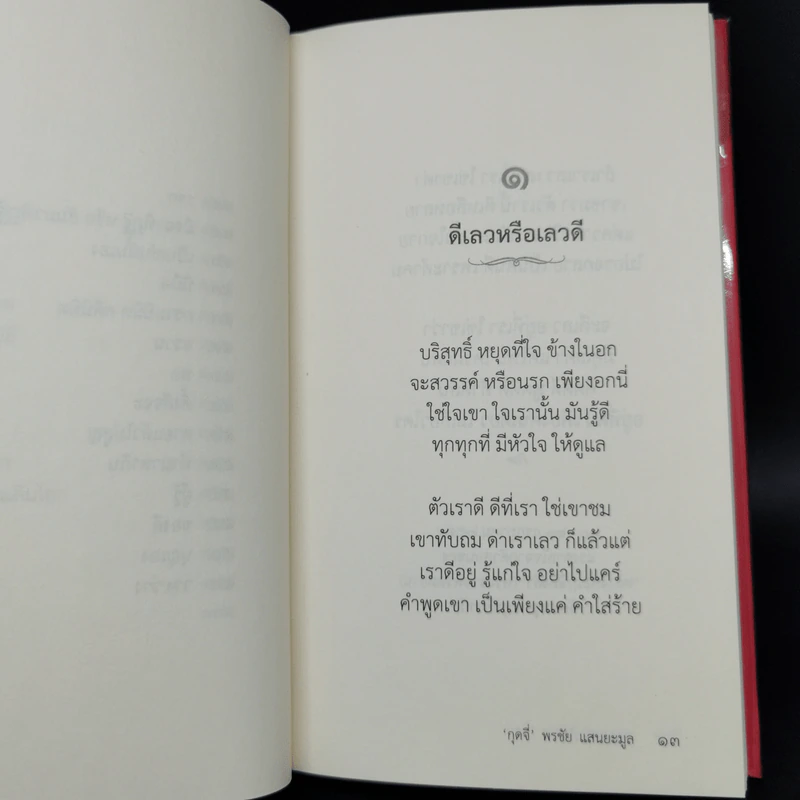 ๑
ดีเลวหรือเลวดี
บริสุทธิ์ หยุดที่ใจ ข้างในอก
จะสวรรค์ หรือนรก เพียงอกนี่
ใช่ใจเขา ใจเรานั้น มันรู้ดี
ทุกทุกที่ มีหัวใจ ให้ดูแล
ตัวเราดี ดีที่เรา ใช่เขาชม
เขาทับถม ด่าเราเลว ก็แล้วแต่
เราดีอยู่ รู้แก่ใจ อย่าไปแคร์
คำพูดเขา เป็นเพียงแค่ คำใส่ร้าย
'กุดจี่' พรชัย แสนยะมูล ๑๓